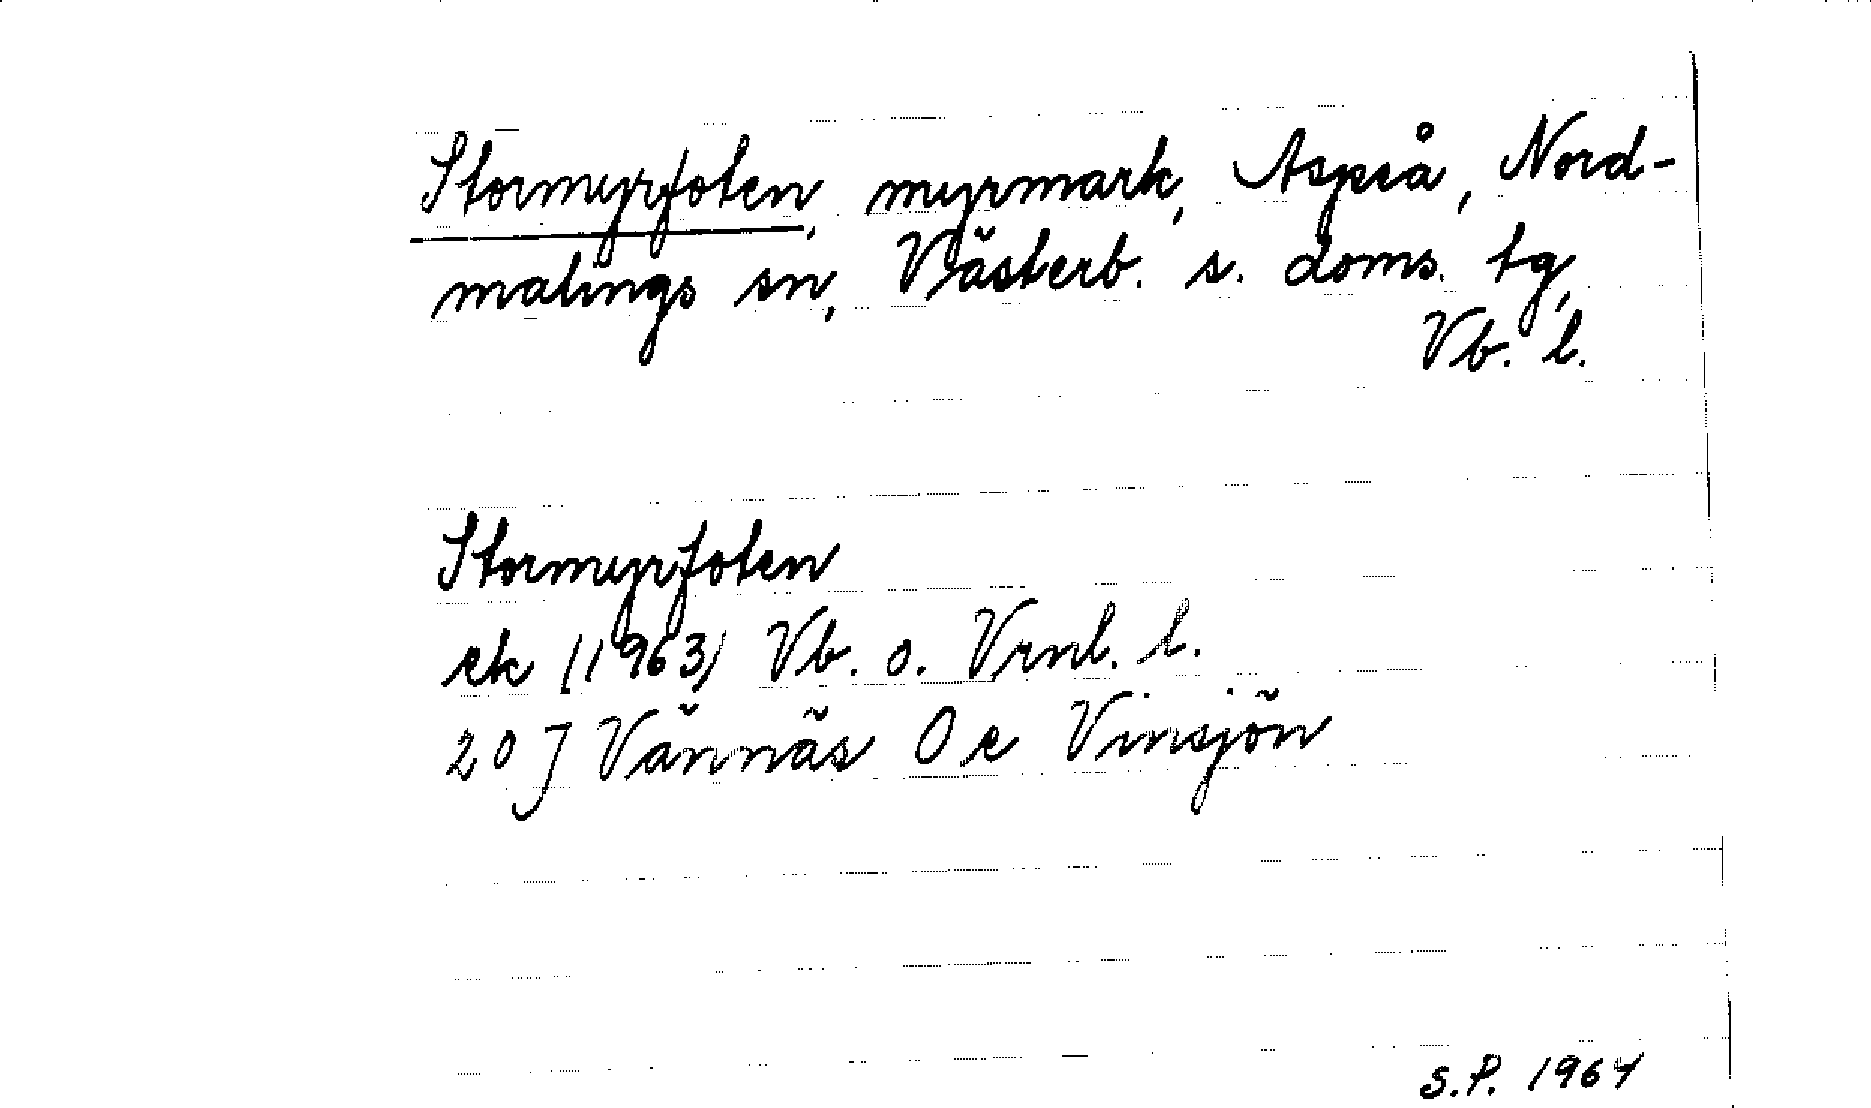 Stormyrfoten, myrmark, Aspeå, Nord-
malings sn, Västerb. s. doms. tg,
Vb. l.
Stormyrfoten
ek (1963) Vb. o. Vrml. l.
20 J Vännäs 0 e Vinsjön
S.P. 1964